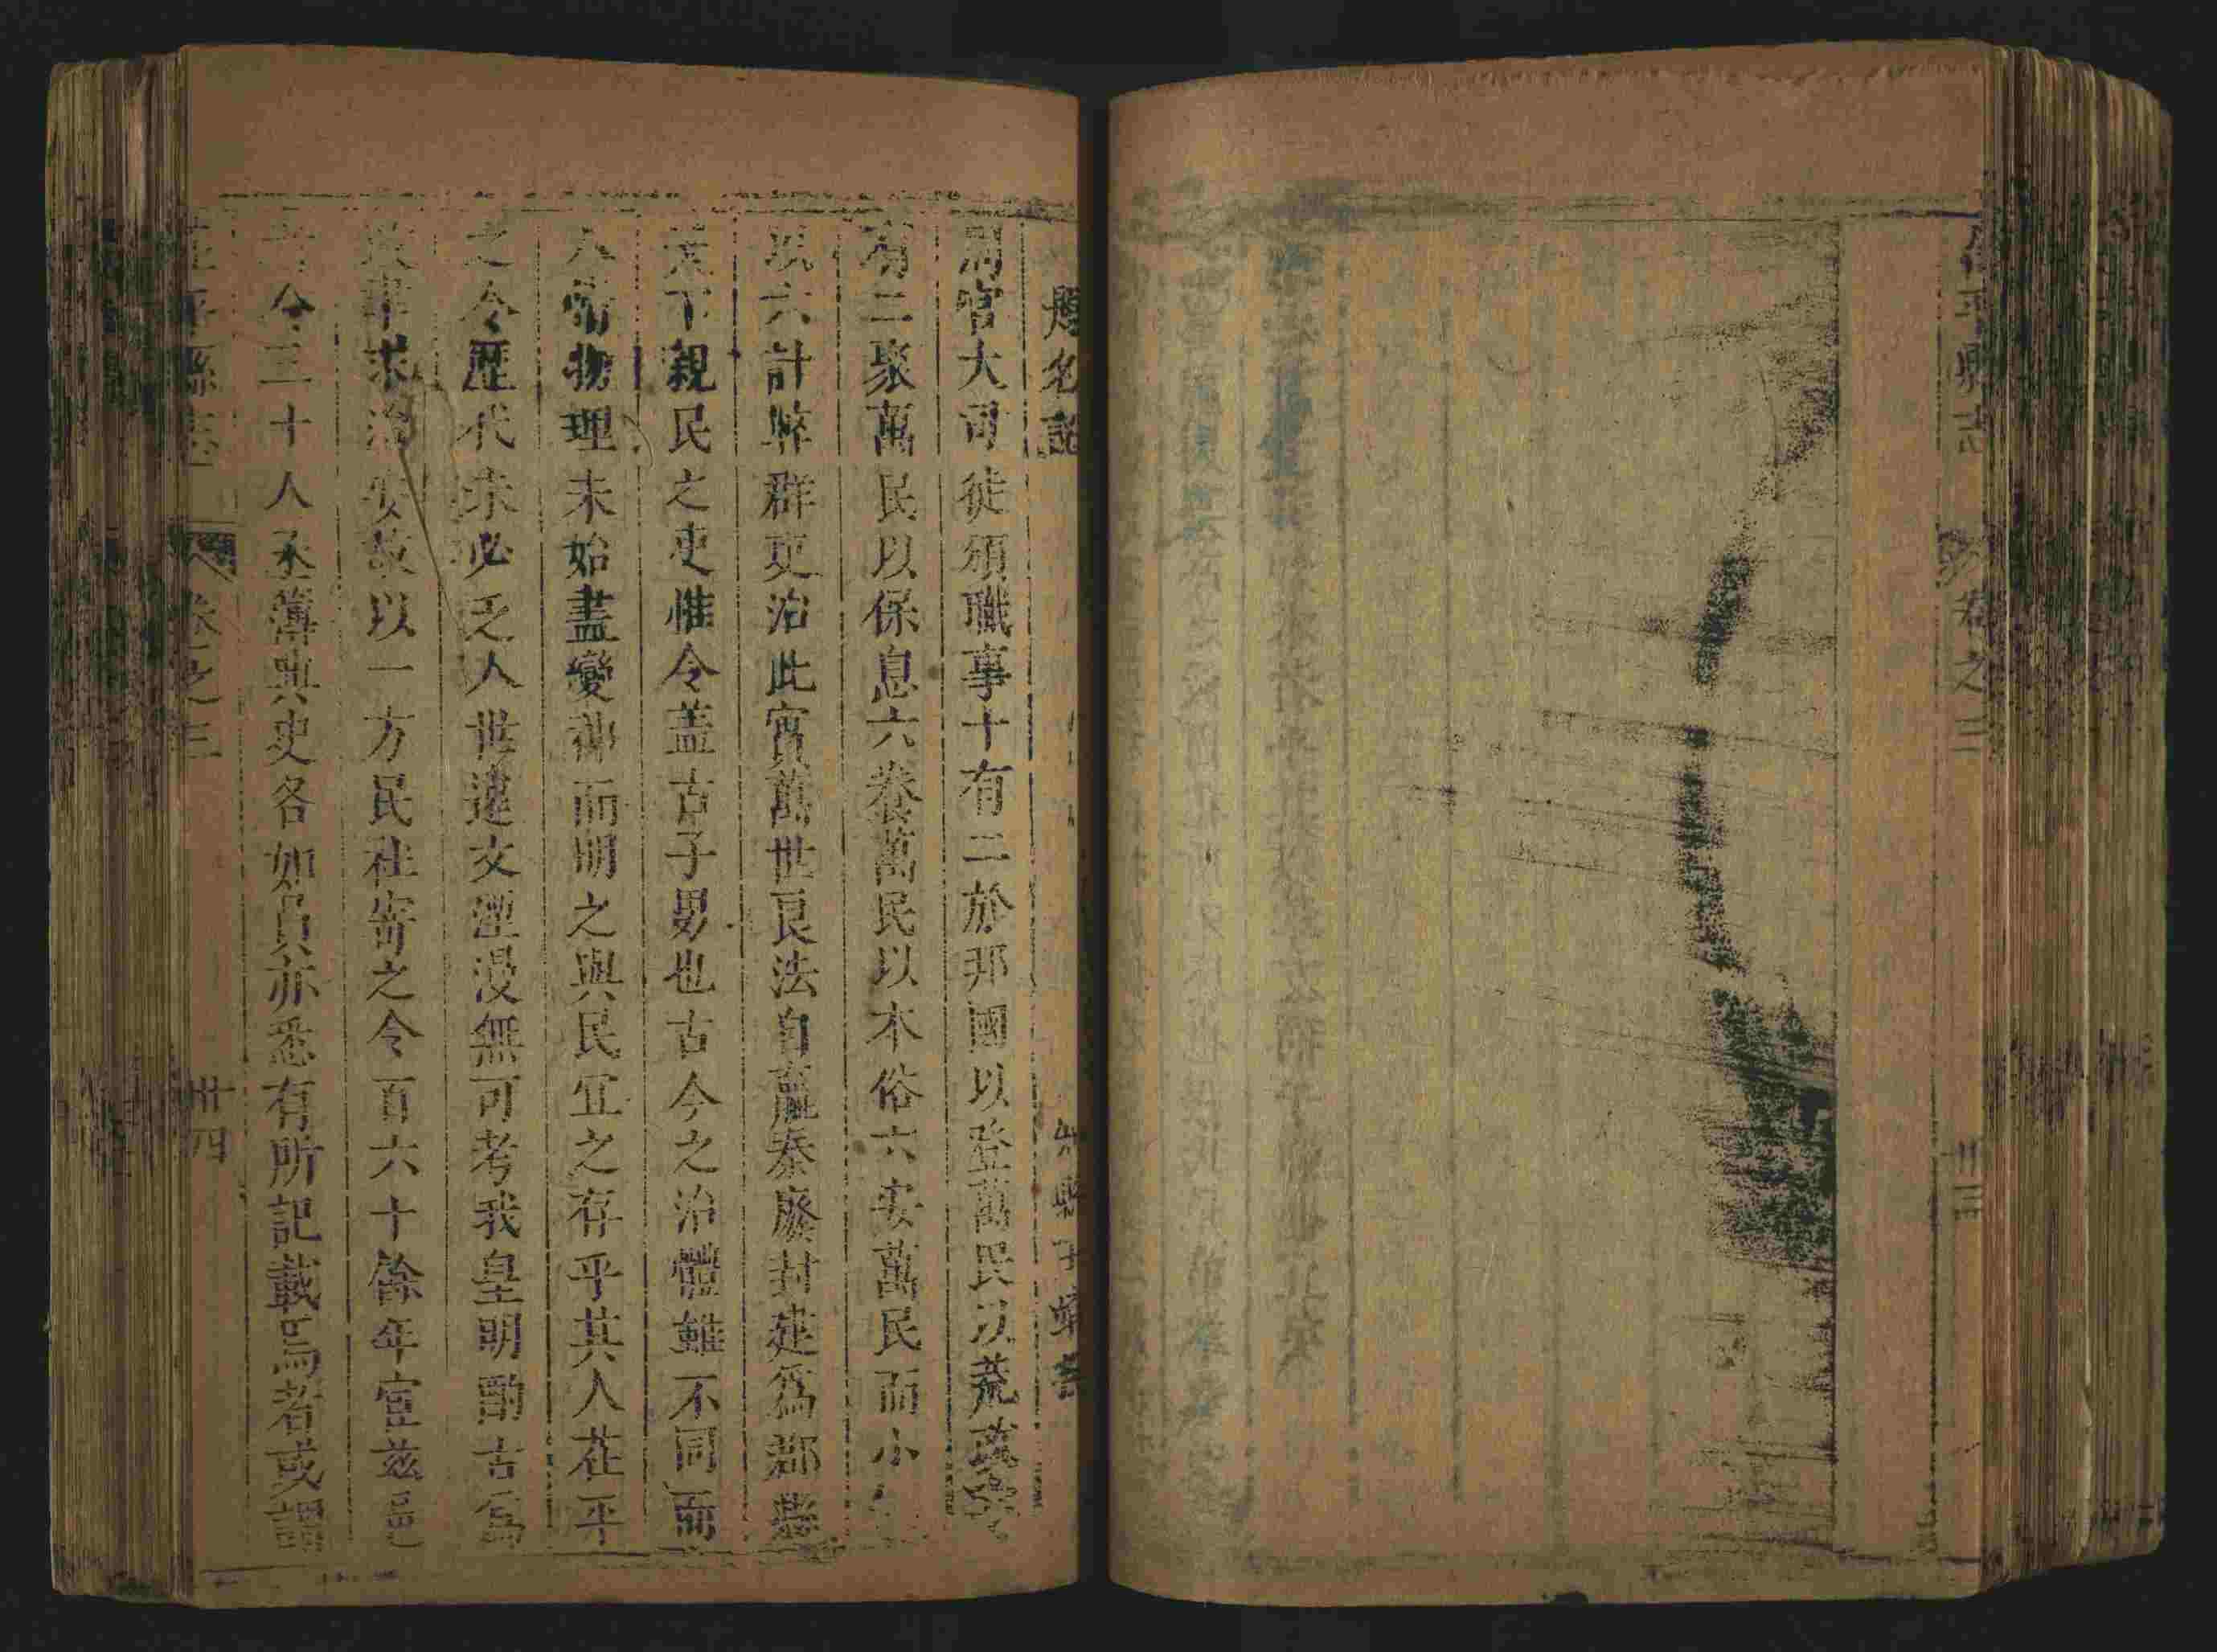 縣志 卷之三 卅三
題名記
周官大司徒頒職事十有二於邦國以登萬民以荒政
有二聚萬民以保息六養萬民以本俗六安萬民而小
以六計弊群吏治此實萬世良法自嬴秦廢封建爲郡
下親民之吏惟令蓋古子男也古今之治體雖不同而
人情物理未始盡變神而明之與民宜之存乎其人茌平
之令歷代未必乏人世遠文湮漫無可考我皇明酌古爲
求治安故以一方民社寄之令百六十餘年宦茲邑
今三十人丞簿典史各如員亦悉有所記載焉者或謂
茌平縣志 卷之三 卅四